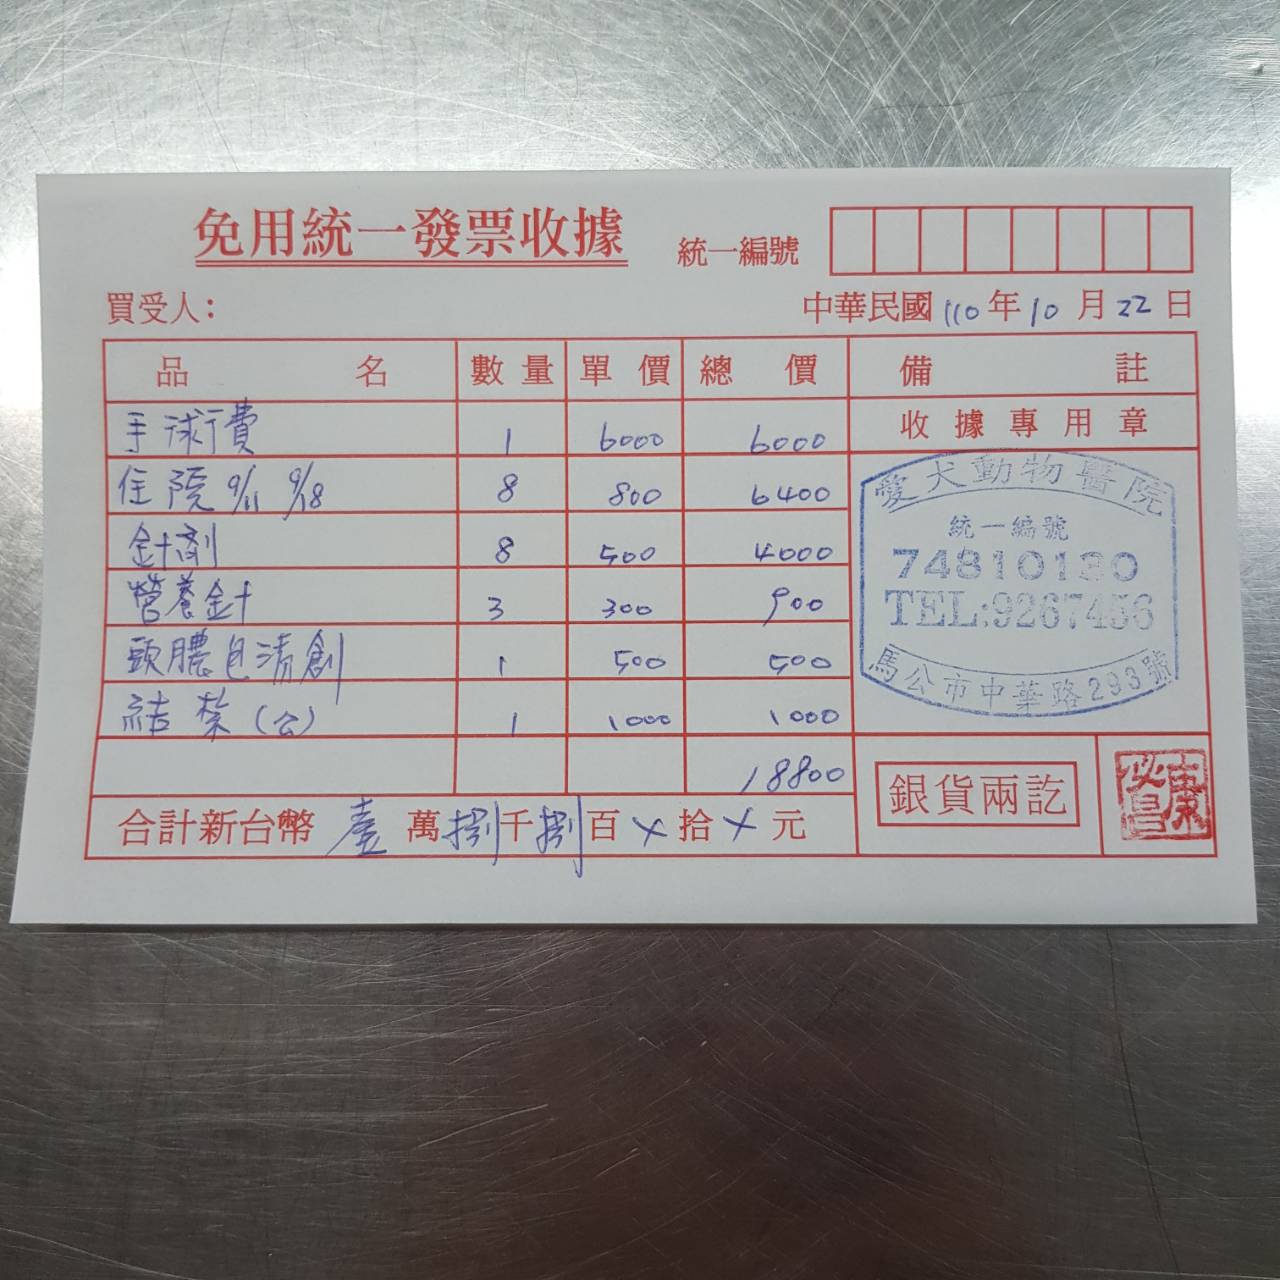 免用統一發票收據
統一編號
買受人：
中華民國110年10月22日
品名 數量 單價 總價 備註
手術費 1 6000 6000
收據專用章
住院 9/11 9/18 8 800 6400
針劑 8 500 4000
營養針 3 300 900
頭膿包清創 1 500 500
結紮(公) 1 1000 1000
18800
愛犬動物醫院
統一編號
74810130
TEL:9267456
馬公市中華路293號
合計新台幣 壹萬捌千捌百ㄨ拾ㄨ元
銀貨兩訖